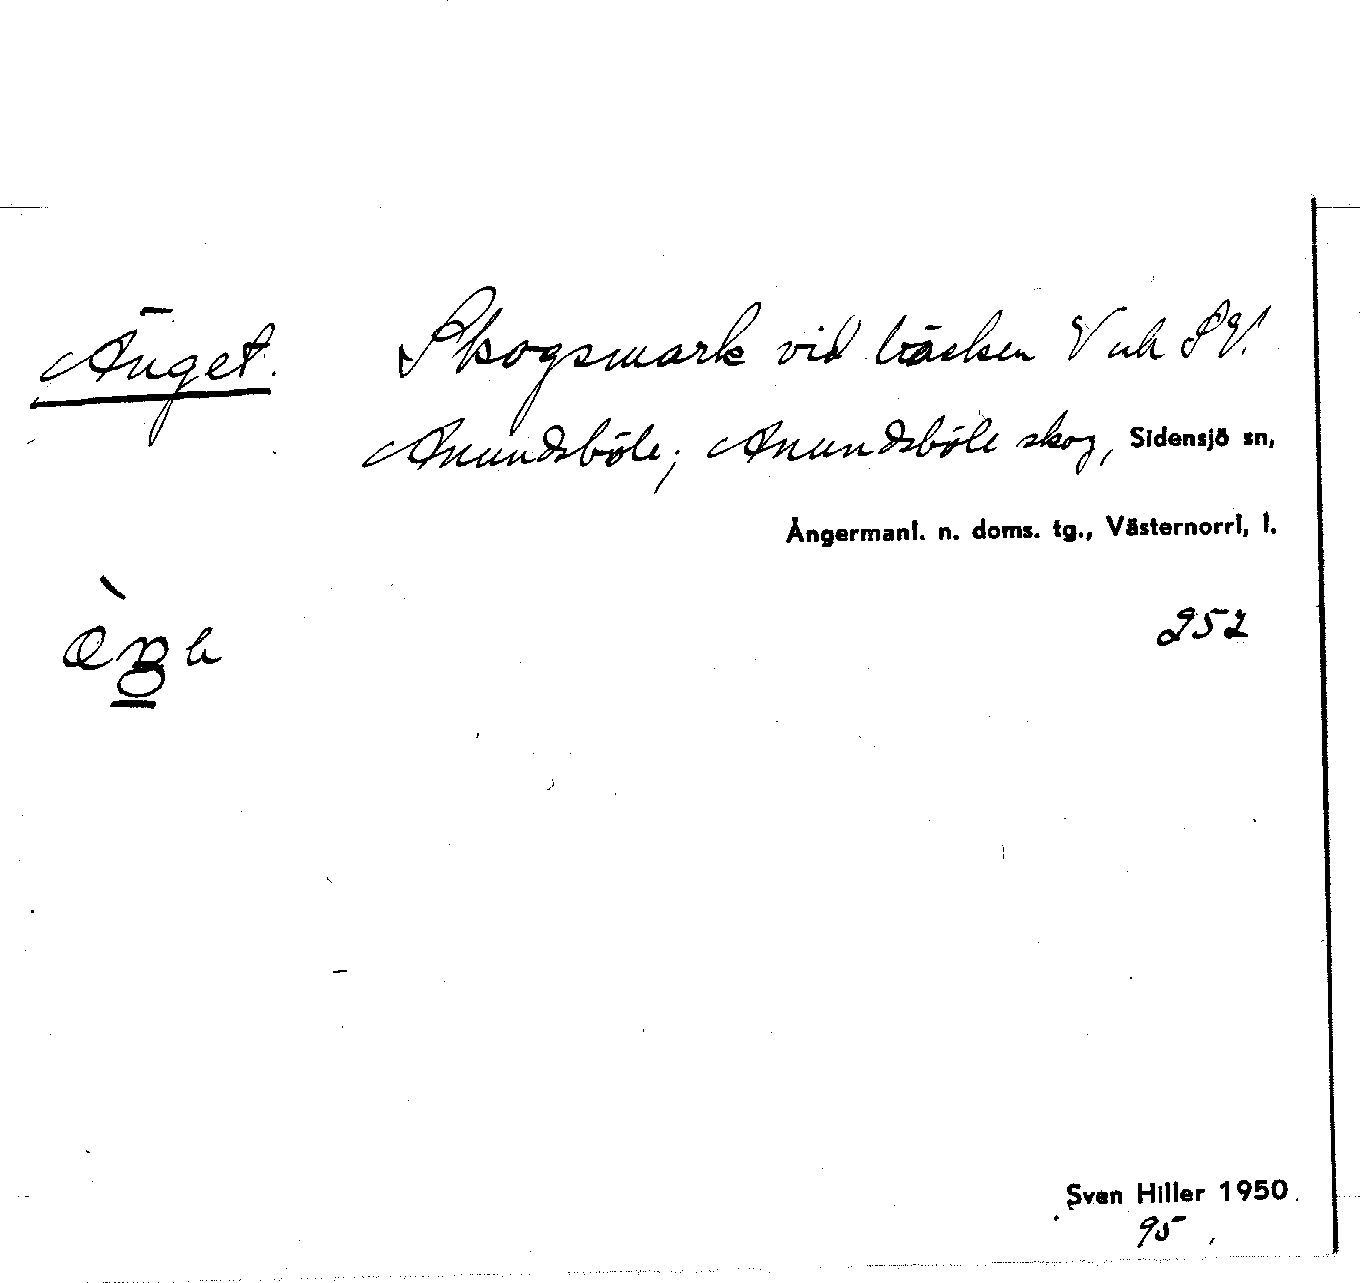 Änget. Skogsmark vid bäcken V och SV.
Anundsböle; Anundsböle skog, Sidensjö sn,
Ångermanl. n. doms. tg., Västernorrl, l.
252
Sven Hiller 1950
95